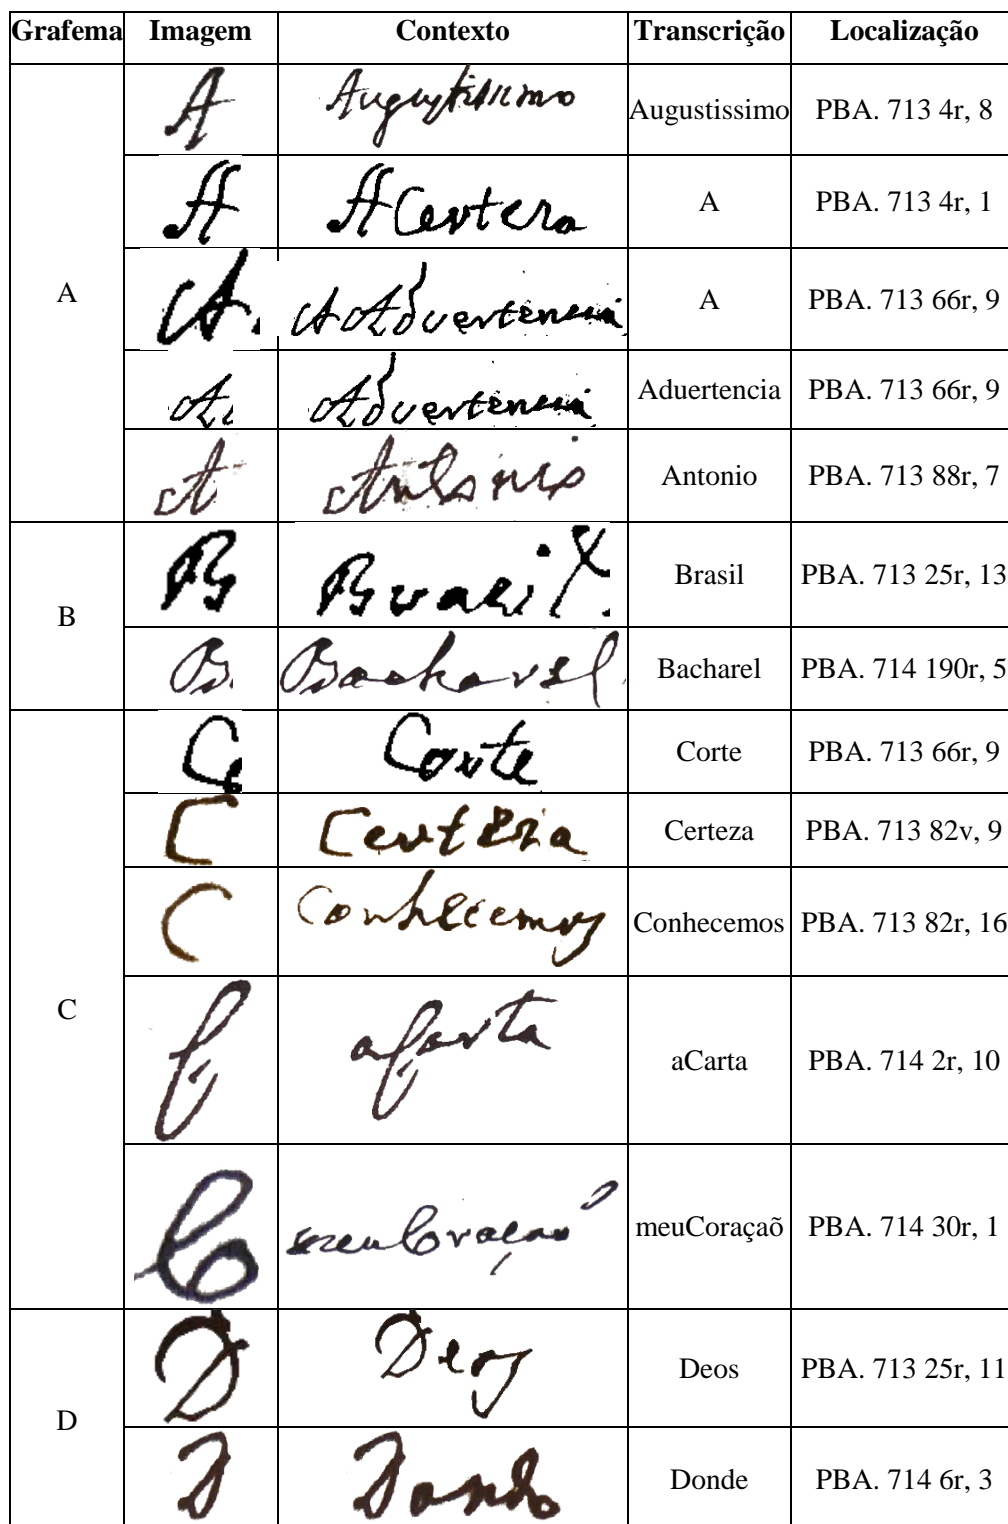 Grafema Imagem Contexto Transcrição Localização
A
A Augustissimo Augustissimo PBA. 713 4r, 8
A ACerteza A PBA. 713 4r, 1
A. A Aduertencia A PBA. 713 66r, 9
A Aduertencia Aduertencia PBA. 713 66r, 9
A Antonio Antonio PBA. 713 88r, 7
B
B Brasil. Brasil PBA. 713 25r, 13
B. Bacharel Bacharel PBA. 714 190r, 5
C
C Corte Corte PBA. 713 66r, 9
C Certeza Certeza PBA. 713 82v, 9
C Conhecemos Conhecemos PBA. 713 82r, 16
C aCarta aCarta PBA. 714 2r, 10
Co meuCoraçaõ meuCoraçaõ PBA. 714 30r, 1
D
D Deos Deos PBA. 713 25r, 11
D Donde Donde PBA. 714 6r, 3